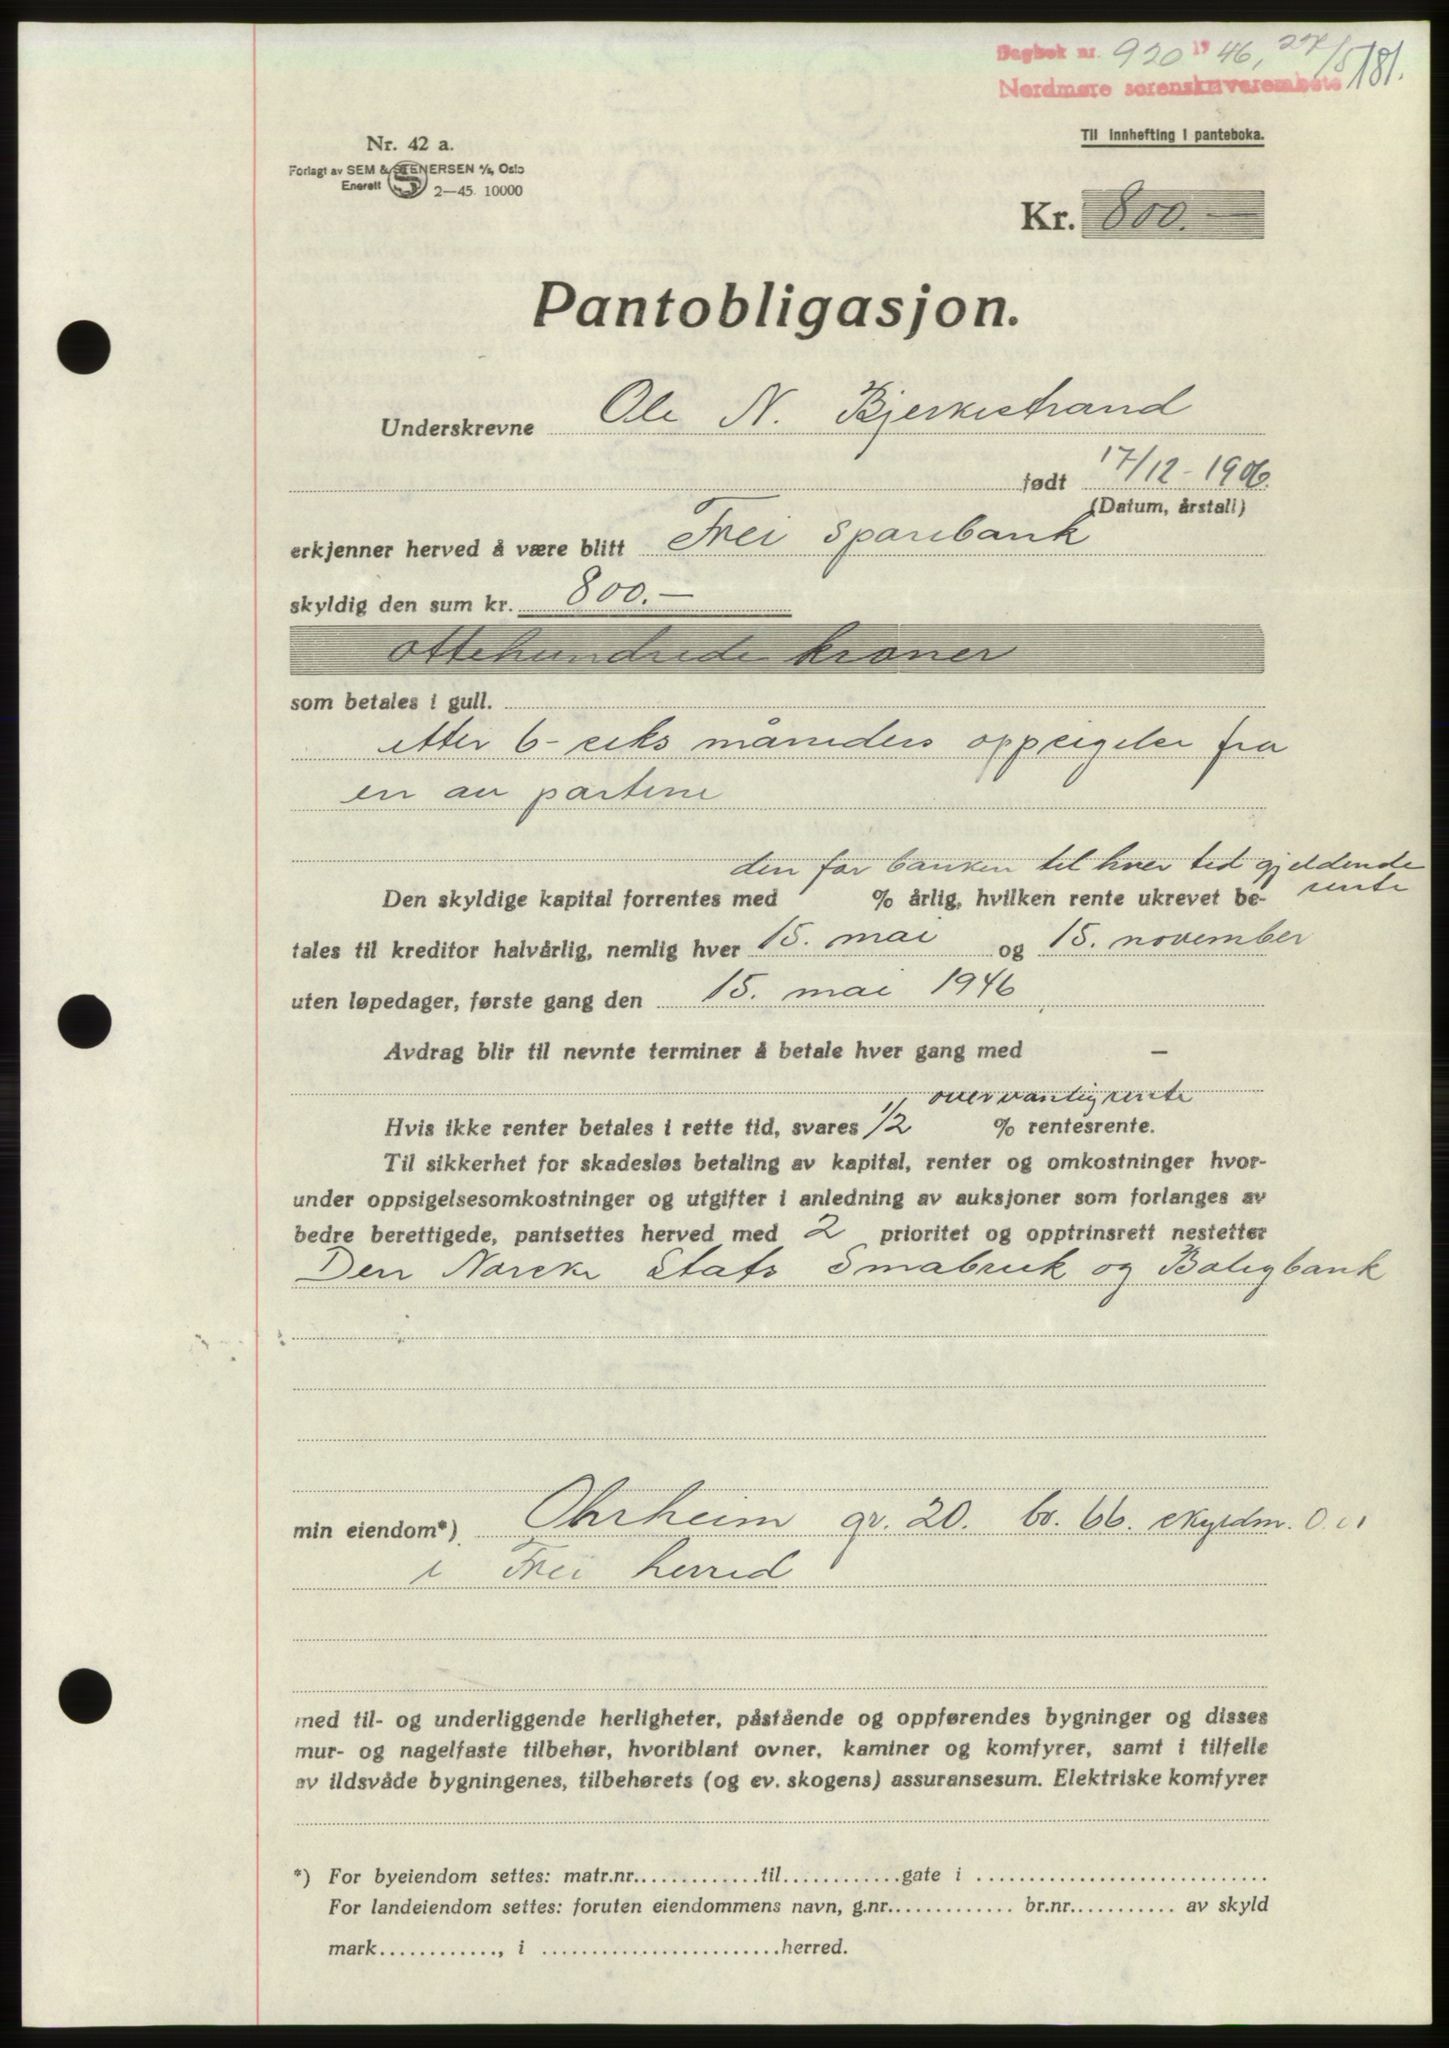 Dagbok nr. 920 19 46, 27/5 181.
Nordmøre sorenskriverembete
Til innhefting i panteboka.
Nr. 42 a.
Forlagt av SEM & STENERSEN A/S, Oslo
Enerett 2—45. 10000
Kr. 800.—
Pantobligasjon.
Underskrevne Ole N. Bjerkestrand
født 17/12-1906.
(Datum, årstall)
erkjenner herved å være blitt Frei Sparebank
skyldig den sum kr. 800.—
ottehundrede kroner
som betales i gull.
etter 6-seks måneders oppsigelse fra
en av partene
den for banken til hver tid gjeldende
rente
Den skyldige kapital forrentes med % årlig, hvilken rente ukrevet be-
tales til kreditor halvårlig, nemlig hver 15. mai og 15. november
uten løpedager, første gang den 15. mai 1946
Avdrag blir til nevnte terminer å betale hver gang med —
over vanlig rente
Hvis ikke renter betales i rette tid, svares 1/2 % rentesrente.
Til sikkerhet for skadesløs betaling av kapital, renter og omkostninger hvor-
under oppsigelsesomkostninger og utgifter i anledning av auksjoner som forlanges av
bedre berettigede, pantsettes herved med 2 prioritet og opptrinsrett nestetter
Den Norske Stats Småbruk og Boligbank
min eiendom*) gr. 20. br. 66. skyldm.
i Frei herred
med til- og underliggende herligheter, påstående og oppførendes bygninger og disses
mur- og nagelfaste tilbehør, hvoriblant ovner, kaminer og komfyrer, samt i tilfelle
av ildsvåde bygningenes, tilbehørets (og ev. skogens) assuransesum. Elektriske komfyrer
*) For byeiendom settes: matr.nr.............til............gate i ............................
For landeiendom settes: foruten eiendommens navn, g.nr............. br.nr........... av skyld
mark............, i ........................herred.